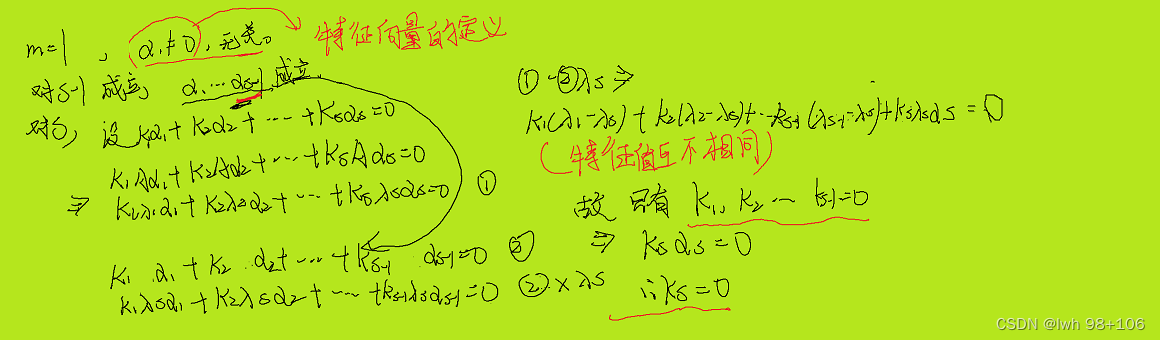 m=1 , α₁≠0, 无关。 特征向量的定义
对s-1 成立, α₁…αs-1 成立,
对s, 设 k₁α₁+K₂α₂+……+Ksαs=0
K₁Aα₁+K₂Aα₂+…+KsAαs=0
⇒ K₁λ₁α₁+K₂λ₂α₂+…+Ksλsαs=0 ①
K₁ α₁+K₂ α₂+…+Ks-1 αs-1=0 ②
K₁λsα₁+K₂λsα₂+……+Ks-1λsαs-1=0 ②×λs
①-②λs⇒
K₁(λ₁-λs)+K₂(λ₂-λs)+…Ks-1(λs-1-λs)+Ksλsαs=0
(特征值互不相同)
故 只有 K₁, K₂…ks-1=0
⇒ Ksαs=0
∴Ks=0
CSDN @lwh 98+106